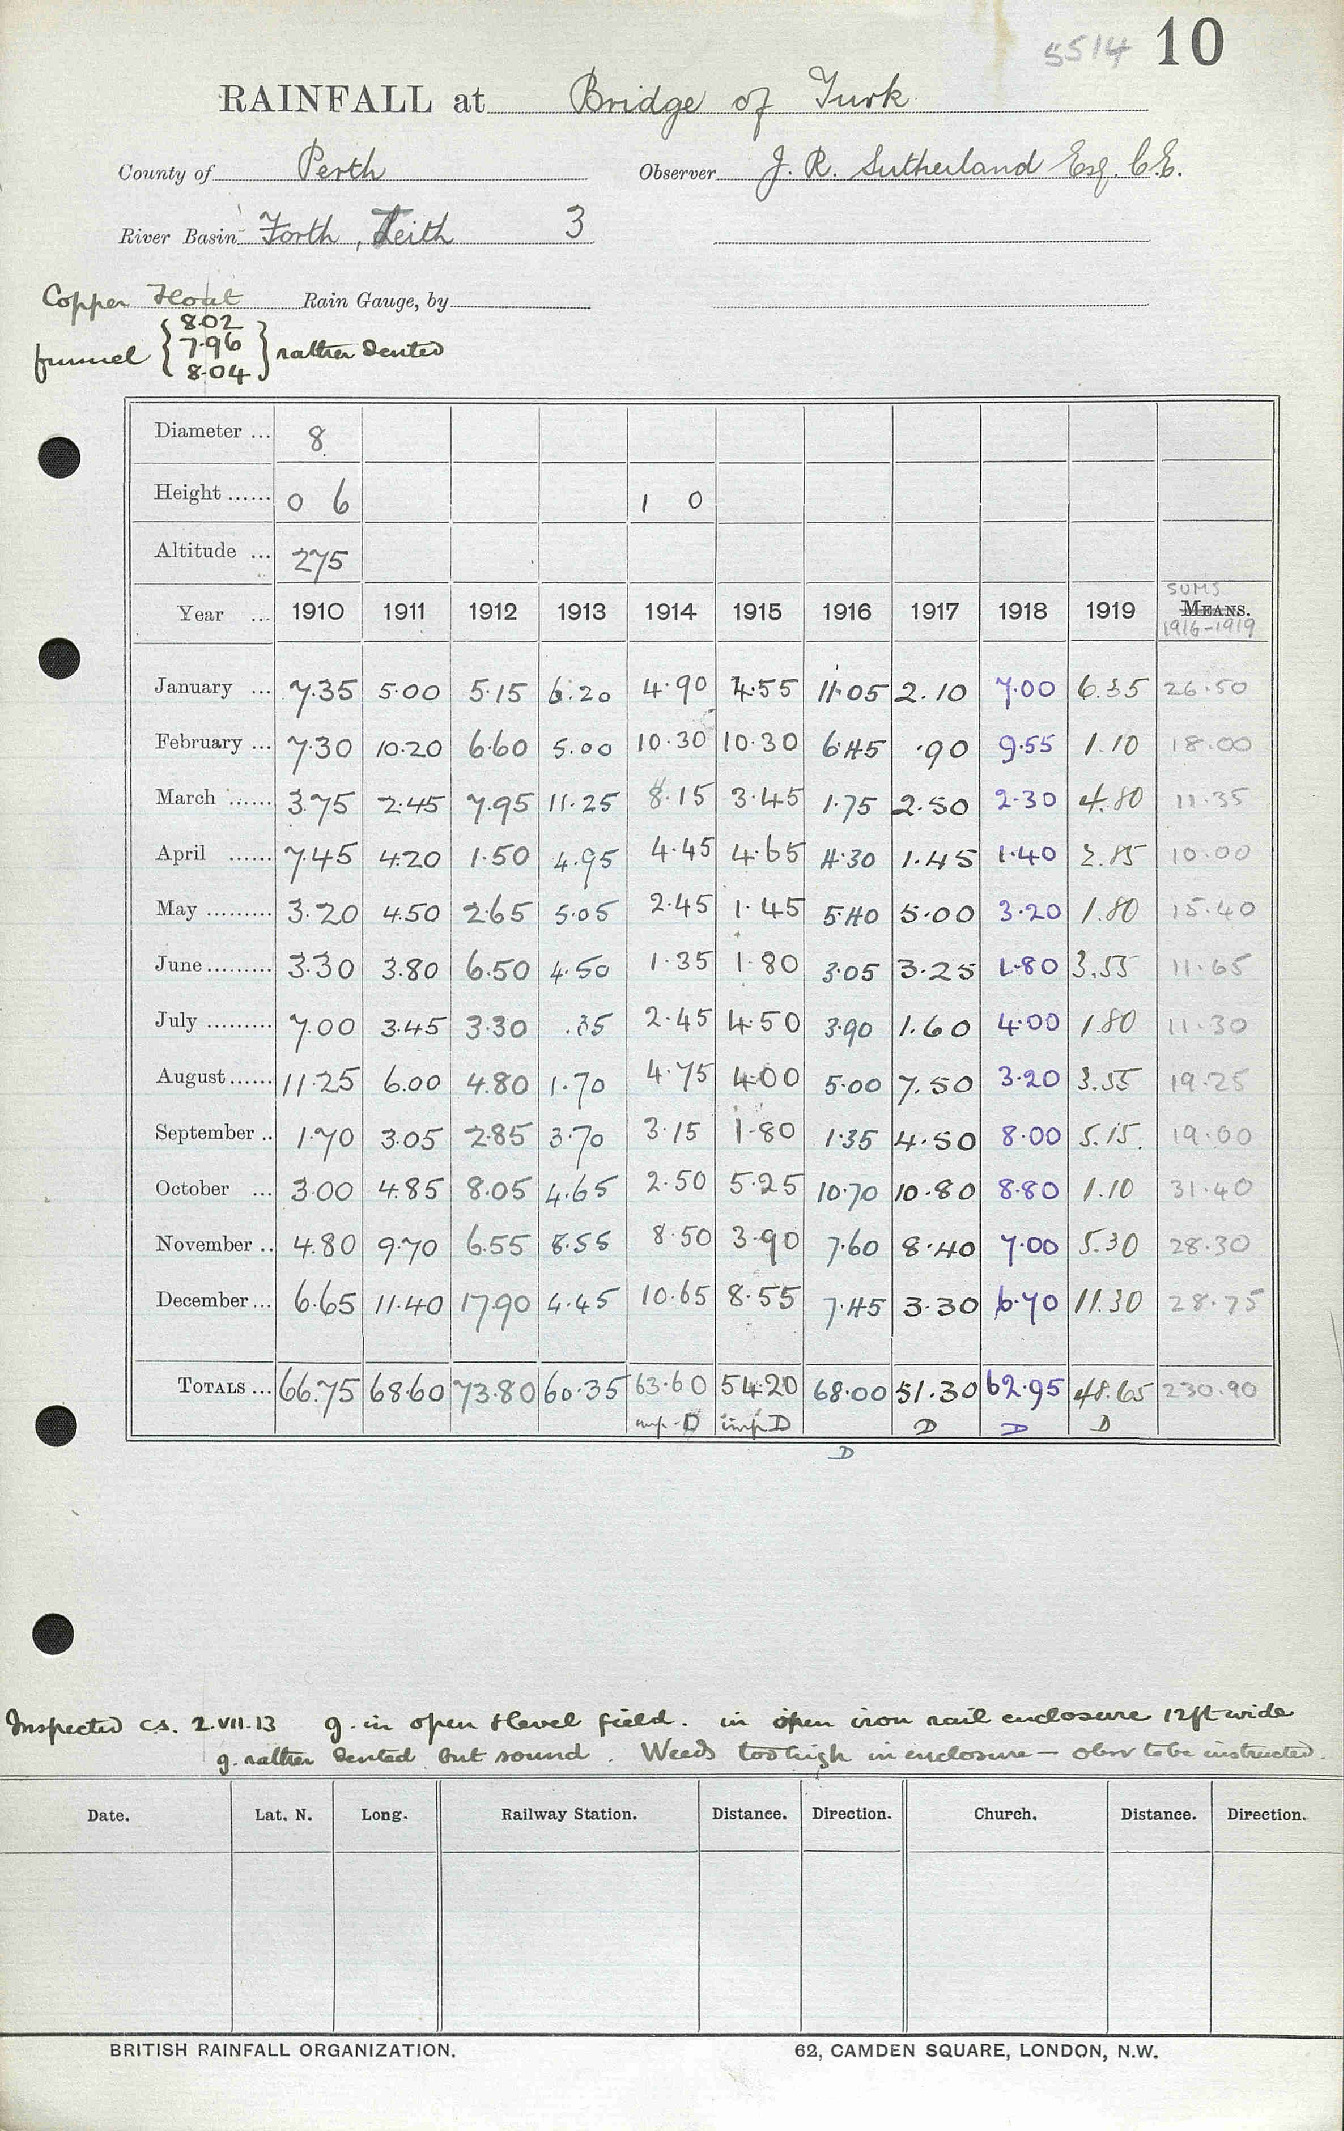 5514 10
RAINFALL at Bridge of Turk
County of Perth Observer J. R. Sutherland Esq. C.E.
River Basin Forth, Teith 3
Copper Float Rain Gauge, by
funnel { 8.02 7.96 8.04 } rather dented
Diameter ... 8
Height ...... 0 6 1 0
Altitude ... 275
Year ... 1910 1911 1912 1913 1914 1915 1916 1917 1918 1919 SUMS MEANS. 1916-1919
January ... 7.35 5.00 5.15 6.20 4.90 4.55 11.05 2.10 7.00 6.35 26.50
February ... 7.30 10.20 6.60 5.00 10.30 10.30 6.45 .90 9.55 1.10 18.00
March ...... 3.75 2.45 7.95 11.25 8.15 3.45 1.75 2.50 2.30 4.80 11.35
April ...... 7.45 4.20 1.50 4.95 4.45 4.65 4.30 1.45 1.40 2.85 10.00
May ......... 3.20 4.50 2.65 5.05 2.45 1.45 5.40 5.00 3.20 1.80 15.40
June ......... 3.30 3.80 6.50 4.50 1.35 1.80 3.05 3.25 1.80 3.55 11.65
July ......... 7.00 3.45 3.30 .35 2.45 4.50 3.90 1.60 4.00 1.80 11.30
August ...... 11.25 6.00 4.80 1.70 4.75 4.00 5.00 7.50 3.20 3.55 19.25
September .. 1.70 3.05 2.85 3.70 3.15 1.80 1.35 4.50 8.00 5.15 19.00
October ... 3.00 4.85 8.05 4.65 2.50 5.25 10.70 10.80 8.80 1.10 31.40
November .. 4.80 9.70 6.55 8.55 8.50 3.90 7.60 8.40 7.00 5.30 28.30
December ... 6.65 11.40 17.90 4.45 10.65 8.55 7.45 3.30 6.70 11.30 28.75
TOTALS ... 66.75 68.60 73.80 60.35 63.60 54.20 68.00 51.30 62.95 48.65 230.90
imp. D imp D D D D
D
Inspected C.S. 2.VII.13 g. in open level field. in open iron rail enclosure 12ft wide
g. rather dented but sound. Weeds too high in enclosure — obsr to be instructed.
Date. Lat. N. Long. Railway Station. Distance. Direction. Church. Distance. Direction.
BRITISH RAINFALL ORGANIZATION. 62, CAMDEN SQUARE, LONDON, N.W.